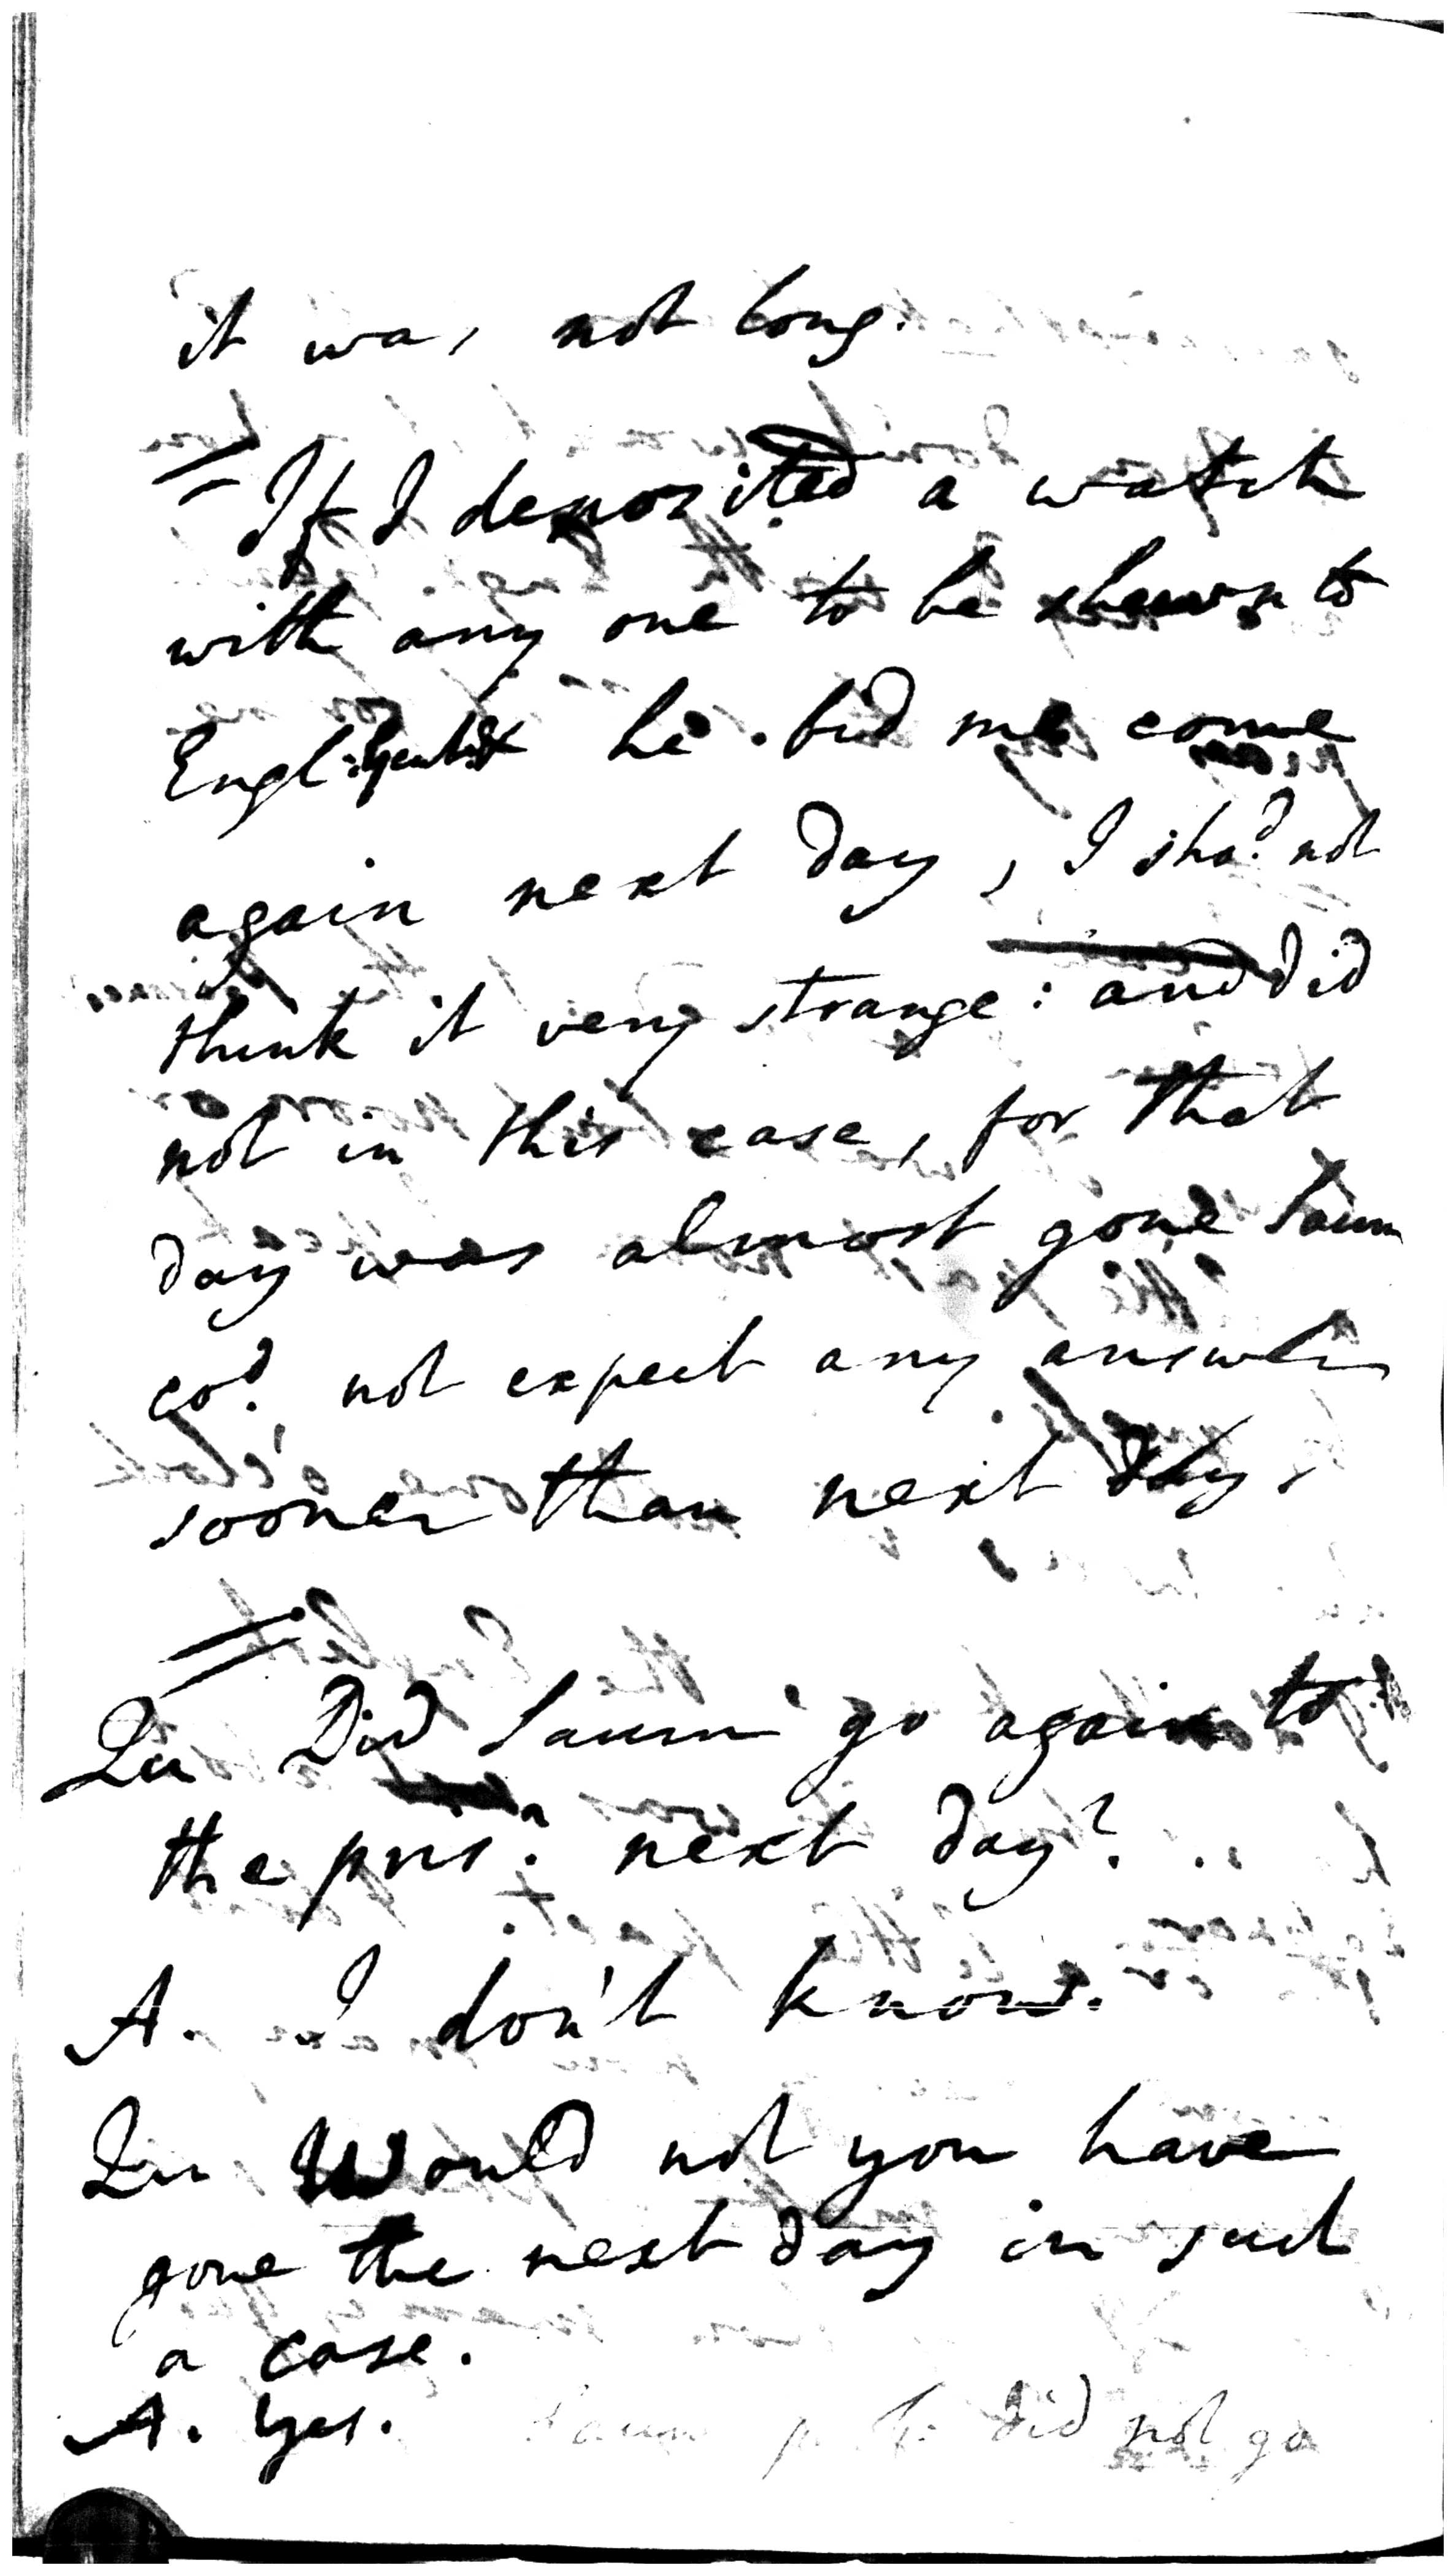 it was not long.
= If I deposited a watch
with any one to be shewn to
Engl: he bid me come
again next day, I shod. not
think it very strange: and did
not in this case, for that
day was almost gone Saum
cod. not expect any answer
sooner than next day.
=
Qu Did Saum go again to
the prisr. next day?
A. I don't know.
Qu Would not you have
gone the next day in such
a case.
A. Yes. Saum did not go